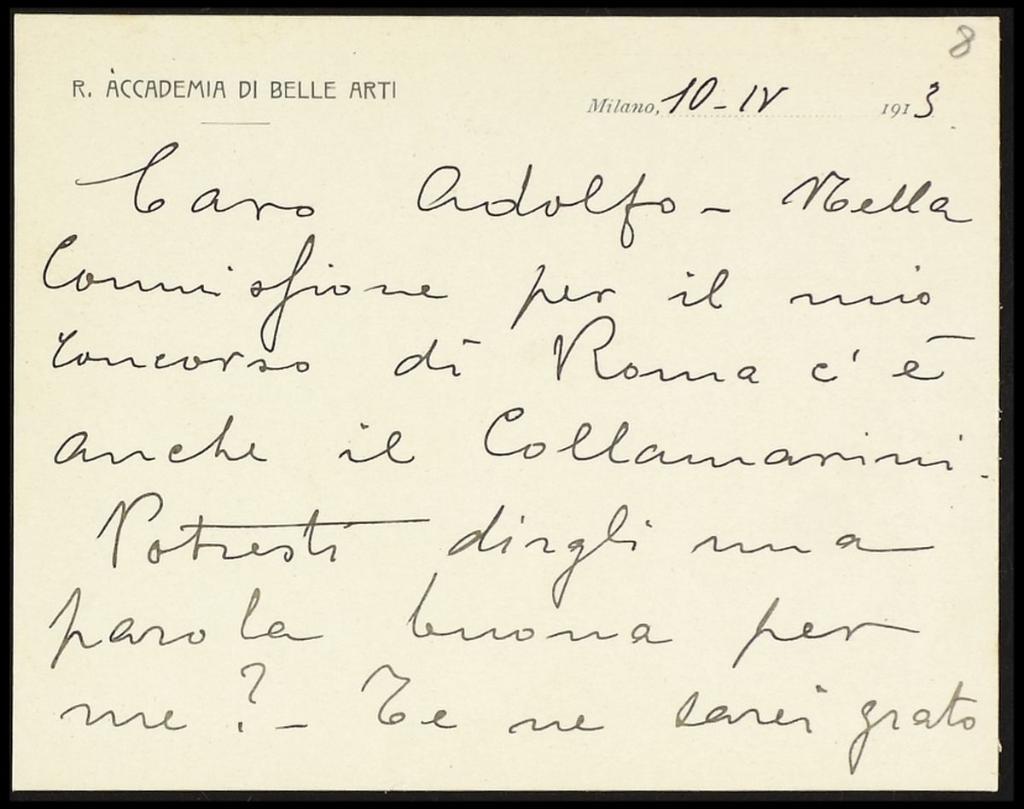 8
R. ÀCCADEMIA DI BELLE ARTI
Milano, 10 - IV 1913.
Caro Adolfo - Nella
Commissione per il mio
concorso di Roma c'è
anche il Collamarini.
Potresti dirgli una
parola buona per
me? - Te ne sarei grato